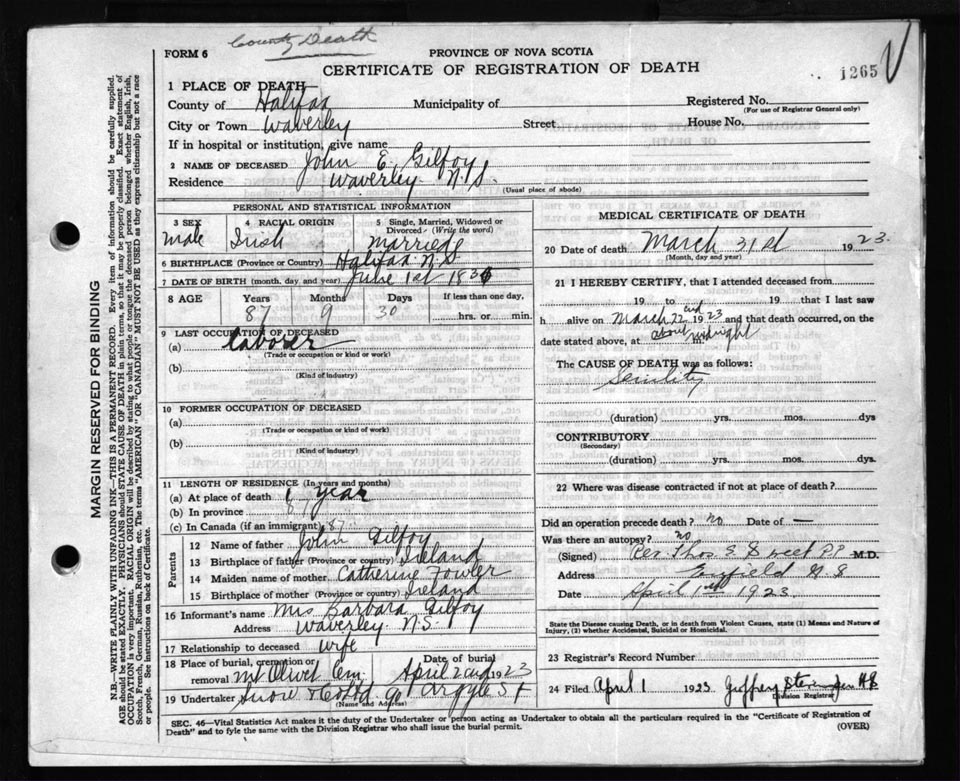 County Death
FORM 6
PROVINCE OF NOVA SCOTIA
CERTIFICATE OF REGISTRATION OF DEATH
1265
1 PLACE OF DEATH—
County of Halifax Municipality of Registered No.
(For use of Registrar General only)
City or Town Waverley Street House No.
If in hospital or institution, give name
2 NAME OF DECEASED John E. Gilfoy
Residence Waverley N.S.
(Usual place of abode)
PERSONAL AND STATISTICAL INFORMATION
3 SEX Male
4 RACIAL ORIGIN Irish
5 Single, Married, Widowed or Divorced (Write the word) Married
6 BIRTHPLACE (Province or Country) Halifax N.S.
7 DATE OF BIRTH (month, day, and year) June 1st 183
8 AGE Years Months Days If less than one day,
87 9 30 hrs. or min.
9 LAST OCCUPATION OF DECEASED
(a) Laborer
(Trade or occupation or kind or work)
(b)
(Kind of industry)
10 FORMER OCCUPATION OF DECEASED
(a)
(Trade or occupation or kind of work)
(b)
(Kind of industry)
11 LENGTH OF RESIDENCE (In years and months)
(a) At place of death 1 year
(b) In province 87
(c) In Canada (if an immigrant) 87
Parents
12 Name of father John Gilfoy
13 Birthplace of father (Province or country) Ireland
14 Maiden name of mother Catherine Fowler
15 Birthplace of mother (Province or country) Ireland
16 Informant's name Mrs Barbara Gilfoy
Address Waverley N.S.
17 Relationship to deceased wife
18 Place of burial, cremation or removal Mt Olivet Cem. Date of burial April 2nd 1923
19 Undertaker Snow & Co Ltd 90 Argyle St
(Name and Address)
MEDICAL CERTIFICATE OF DEATH
20 Date of death March 31st 1923.
(Month, day and year)
21 I HEREBY CERTIFY, that I attended deceased from
19 to 19 that I last saw
h alive on March 22nd 1923 and that death occurred, on
date stated above, at about midnight
The CAUSE OF DEATH was as follows:
Senility
(duration) yrs. mos. dys
CONTRIBUTORY
(Secondary)
(duration) yrs. mos. dys.
22 Where was disease contracted if not at place of death?
Did an operation precede death? no Date of —
Was there an autopsy? no
(Signed) Rev Thos S Sweet PP M.D.
Address Enfield N S
Date April 1st 1923.
State the Disease causing Death, or in death from Violent Causes, state (1) Means and Nature of
Injury, (2) whether Accidental, Suicidal or Homicidal.
23 Registrar's Record Number
24 Filed April 1 1923
Division Registrar
SEC. 46—Vital Statistics Act makes it the duty of the Undertaker or person acting as Undertaker to obtain all the particulars required in the "Certificate of Registration of
Death" and to fyle the same with the Division Registrar who shall issue the burial permit. (OVER)
MARGIN RESERVED FOR BINDING
N.B.—WRITE PLAINLY WITH UNFADING INK—THIS IS A PERMANENT RECORD. Every item of information should be carefully supplied.
AGE should be stated EXACTLY. PHYSICIANS should STATE CAUSE OF DEATH in plain terms, so that it may be properly classified. Exact statement of
OCCUPATION is very important. RACIAL ORIGIN will be described by stating to what people or tongue the deceased person belonged whether English, Irish,
Scotch, French, German, Russian, Ruthenian, etc. The terms "AMERICAN" or "CANADIAN" MUST NOT BE USED as they express citizenship but not a race
or people. See instructions on back of Certificate.